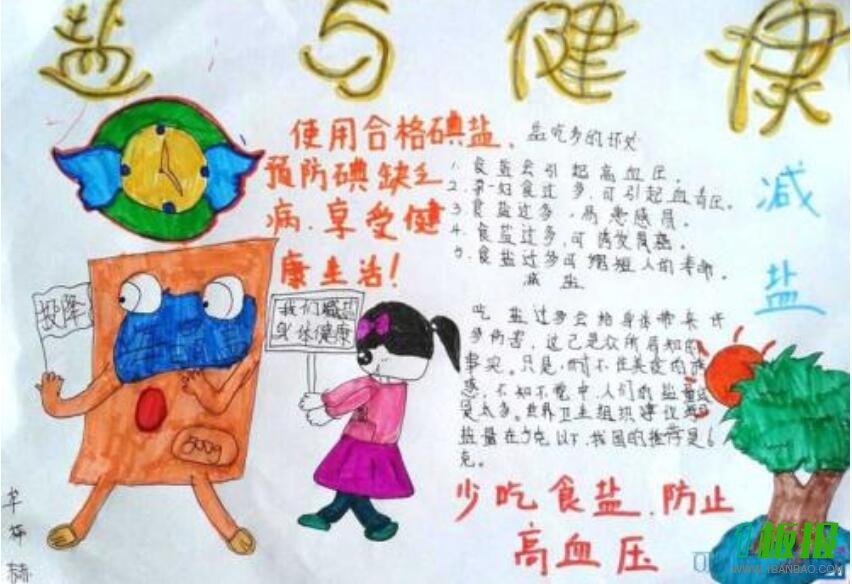 盐与健康
使用合格碘盐、
预防碘缺乏
病、享受健
康生活！
盐吃多的坏处
1. 食盐会引起高血压。
2. 孕妇食过多，可引起血压。
3 食盐过多，易患感冒。
4. 食盐过多，可诱发胃癌。
5. 食盐过多可缩短人的寿命。
减
盐
减盐
吃盐过多会给身体带来许
多伤害，这已是众所周知的
事实。只是，不住美食的诱
惑，不知不觉中，人们的盐量还
是太多。世界卫生组织建议每日
盐量在5克以下，我国的推荐是6
克。
投降
我们减盐
身体健康
500g
少吃食盐、防止
高血压
板报
WWW.1BANBAO.COM